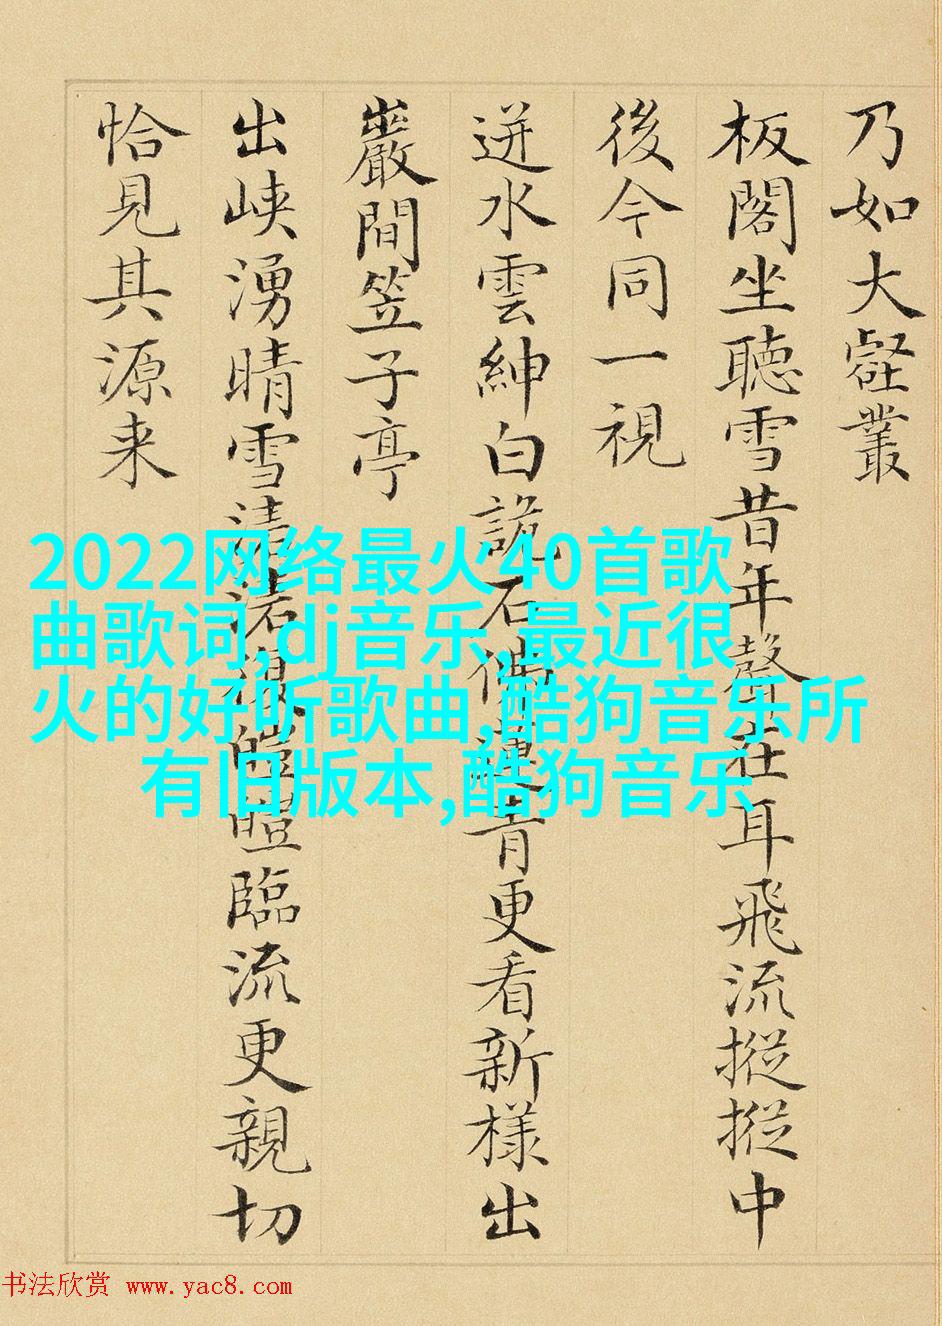 乃如大壑叢
板閣坐聽雪昔年聲在耳飛流摐摐中
後今同一視
迸水雲紳白詭石青更看新樣出
巖間笠子亭
出峽湧晴雪清皚皚臨流更親切
恰見其源来
2022网络最火40首歌
曲歌词,dj音乐,最近很
火的好听歌曲,酷狗音乐所
有旧版本,酷狗音乐
书法欣赏 www.yac8.com